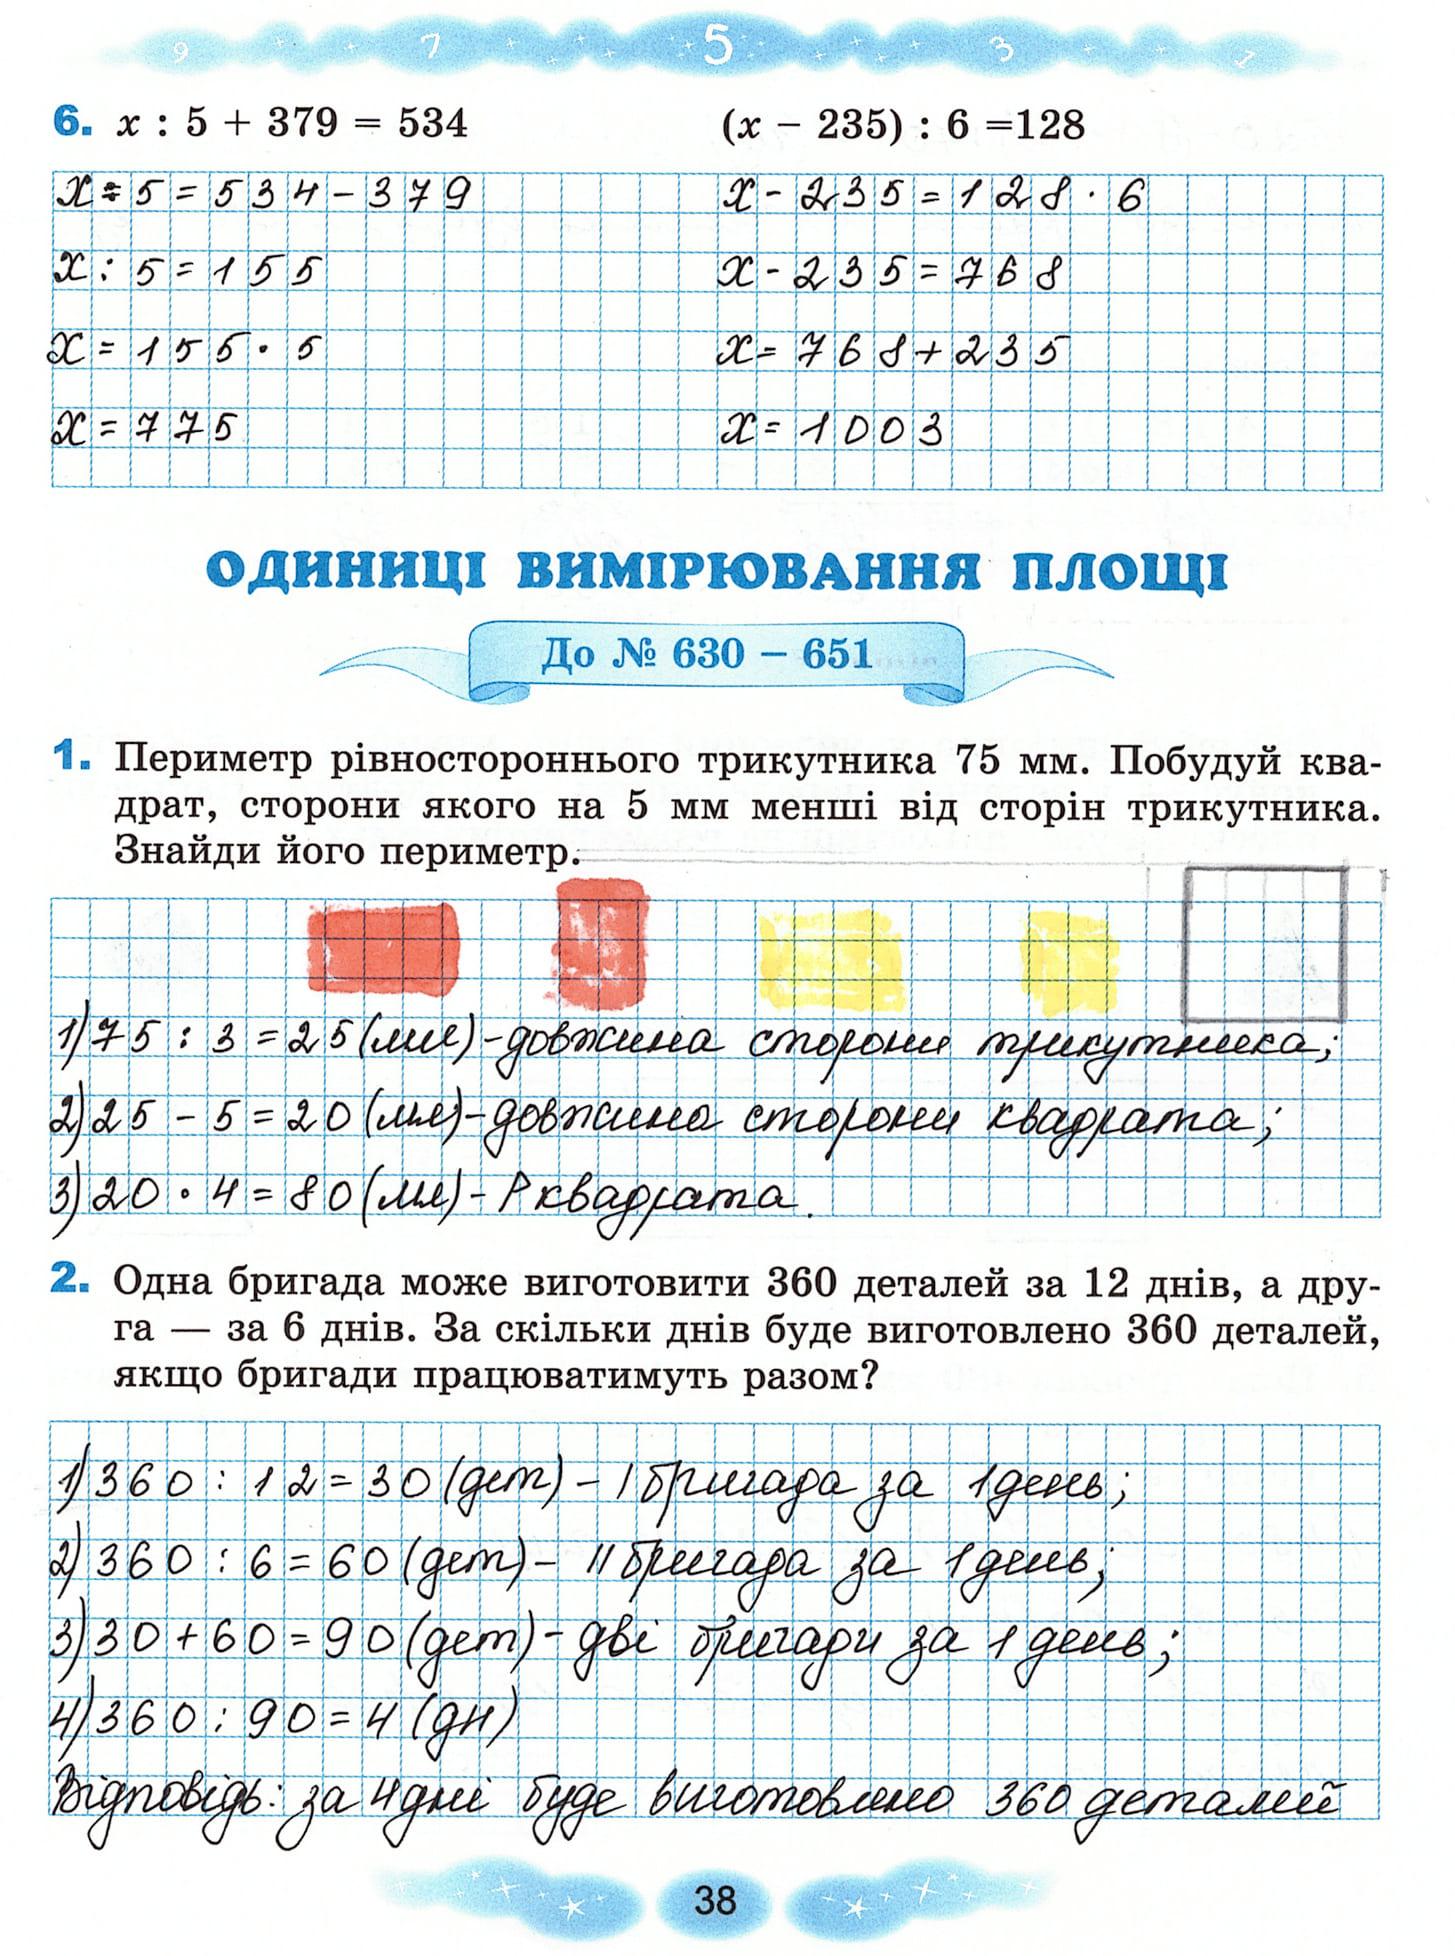 9 7 5 3 1
6. x : 5 + 379 = 534 (x − 235) : 6 =128
x : 5 = 534 - 379 x - 235 = 128 · 6
x : 5 = 155 x - 235 = 768
x = 155 · 5 x = 768 + 235
x = 775 x = 1003
ОДИНИЦІ ВИМІРЮВАННЯ ПЛОЩІ
До № 630 – 651
1. Периметр рівностороннього трикутника 75 мм. Побудуй ква-
драт, сторони якого на 5 мм менші від сторін трикутника.
Знайди його периметр.
1) 75 : 3 = 25 (мм) - довжина сторони трикутника;
2) 25 - 5 = 20 (мм) - довжина сторони квадрата;
3) 20 · 4 = 80 (мм) - P квадрата.
2. Одна бригада може виготовити 360 деталей за 12 днів, а дру-
га — за 6 днів. За скільки днів буде виготовлено 360 деталей,
якщо бригади працюватимуть разом?
1) 360 : 12 = 30 (дет) - I бригада за 1 день;
2) 360 : 6 = 60 (дет) - II бригада за 1 день;
3) 30 + 60 = 90 (дет) - дві бригади за 1 день;
4) 360 : 90 = 4 (дн)
Відповідь: за 4 дні буде виготовлено 360 деталей
38